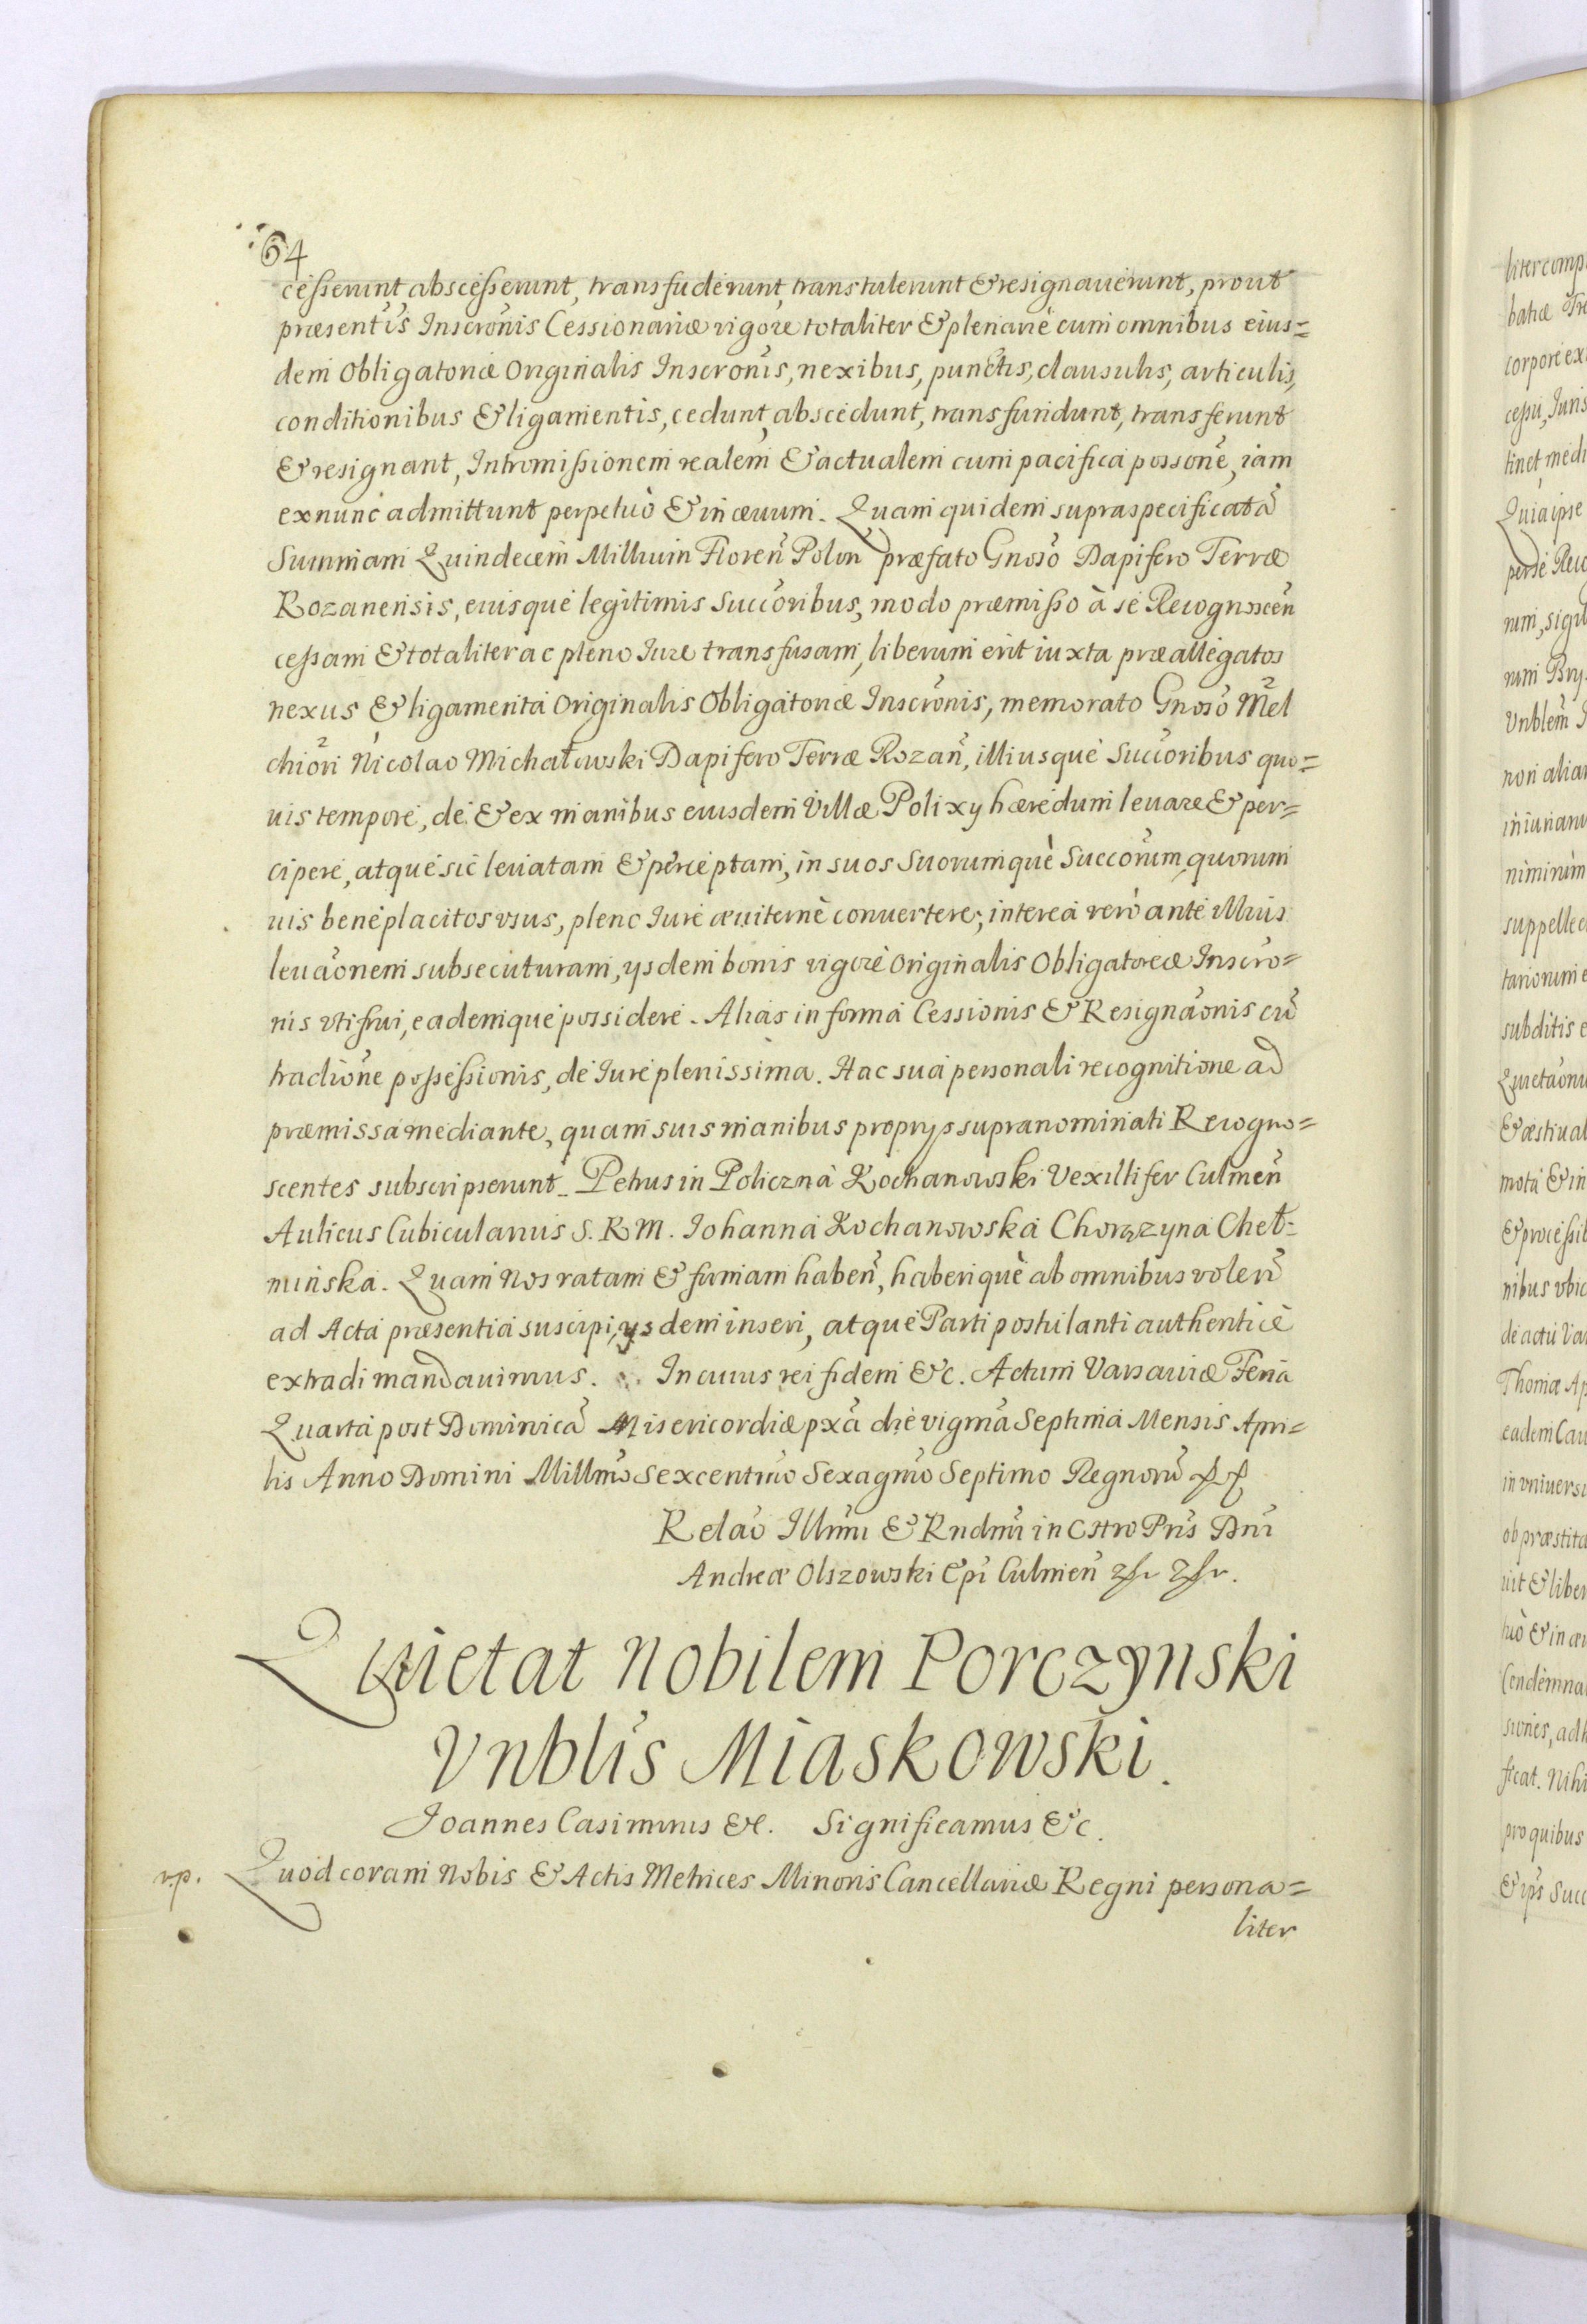 64
cesserunt abscesserunt, transfuderunt, transtulerunt & resignauerunt, prout
præsentis Inscrõnis Cessionariæ vigore totaliter & plenariè cum omnibus eius=
dem Obligatoriæ Originalis Inscrõnis, nexibus, punctis, clausulis, articulis,
conditionibus & ligamentis, cedunt, abscedunt, transfundunt, transferunt
& resignant, Intromissionem realem & actualem cum pacifica possonẽ, iam
exnunc admittunt perpetuò & in æuum. Quam quidem supraspecificatã
Summam Quindecem Millium Floreñ Polon præfato Gnoso Dapifero Terræ
Rozanensis, eiusque legitimis Succoribus, modo præmisso à se Recognosceñ
cessam & totaliter ac pleno Iure transfusam, liberum erit iuxta præallegatos
nexus & ligamenta Originalis Obligatoriæ Inscrõnis, memorato Gnoso Mel
chiori Nicolao Michałowski Dapifero Terræ Rozañ, illiusque Succoribus quo=
uis tempore, de & ex manibus eiusdem Villæ Polixy hæredum leuare & per=
cipere, atque sic leuatam & perceptam, in suos Suorumquè Succorum, quorum
uis beneplacitos vsus, pleno Iure æuiternè conuertere; interea verò ante illius
leuaõnem subsecuturam, ysdem bonis vigore Originalis Obligatoreæ Inscro=
nis vti frui, eademque possidere. Alias in forma Cessionis & Resignaõnis cũ
tradiõne possessionis, de Iure plenissima. Hac sua personali recognitione ad
præmissa mediante, quam suis manibus proprys supranominati Recogno=
scentes subscripserunt. Petrus in Policzna Kochanowski Vexillifer Culmeñ
Aulicus Cubicularius S. R. M. Iohanna Kochanowska Chorązyna Cheł=
minska. Quam Nos ratam & firmam habeñ, haberiquè ab omnibus voleñ
ad Acta præsentia suscipi, ysdem inseri, atque Parti postulanti authenticè
extradi mandauimus. In cuius rei fidem &c. Actum Varsauiæ Feria
Quarta post Dominicã Misericordiæ pxã die vigmã Septima Mensis Apri=
lis Anno Domini Millmõ Sexcentmo Sexagmõ Septimo Regnorũ
Relaõ Illmi & Rndmi in Chro Pris Dni
Andreæ Olszowski Epi Culmeñ
Quietat Nobilem Porczynski
Vnblis Miaskowski.
Joannes Casimirus &c. Significamus &c.
v.p. Quod coram Nobis & Actis Metrices Minoris Cancellariæ Regni persona=
liter